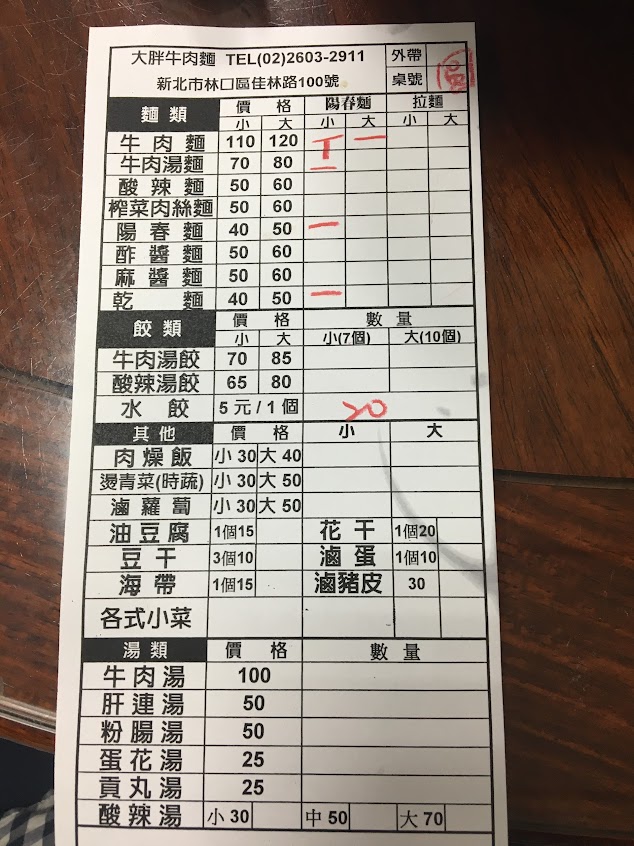 大胖牛肉麵 TEL(02)2603-2911 外帶
新北市林口區佳林路100號 桌號
麵類 價格 陽春麵 拉麵
小 大 小 大 小 大
牛肉麵 110 120 丅 一
牛肉湯麵 70 80 一
酸辣麵 50 60
榨菜肉絲麵 50 60
陽春麵 40 50 一
酢醬麵 50 60
麻醬麵 50 60
乾麵 40 50 一
餃類 價格 數量
小 大 小(7個) 大(10個)
牛肉湯餃 70 85
酸辣湯餃 65 80
水餃 5元/1個 20
其他 價格 小 大
肉燥飯 小30 大40
燙青菜(時蔬) 小30 大50
滷蘿蔔 小30 大50
油豆腐 1個15 花干 1個20
豆干 3個10 滷蛋 1個10
海帶 1個15 滷豬皮 30
各式小菜
湯類 價格 數量
牛肉湯 100
肝連湯 50
粉腸湯 50
蛋花湯 25
貢丸湯 25
酸辣湯 小30 中50 大70